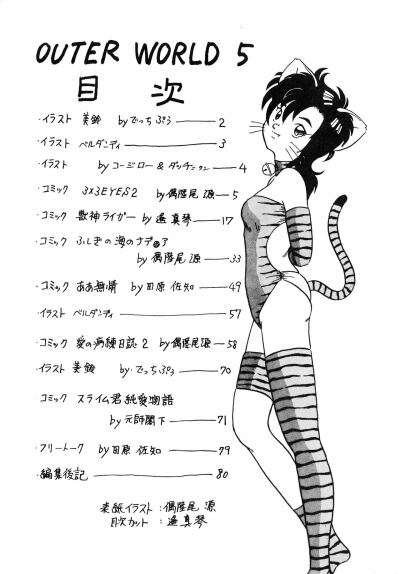 OUTER WORLD 5
目 次
・イラスト 美鈴 byでっちぷぅ 2
・イラスト ベルダンディ 3
・イラスト by コージロー&ダッチ 4
・コミック 3×3EYES2 by偶陸尾 源 5
・コミック 獣神ライガー by 遙真琴 17
・コミック ふしぎの海のナディア
by 偶陸尾 源 33
・コミック ああ無情 by 田原 佐知 49
・イラスト ベルダンディ 57
・コミック 愛の病棟日誌2 by偶陸尾 源 58
・イラスト 美鈴 by・でっちぷぅ 70
コミック スライム君純愛物語
by 元師閣下 71
・フリートーク by田原 佐知 79
・編集後記 80
表紙イラスト:偶陸尾 源
目次カット:遙真琴